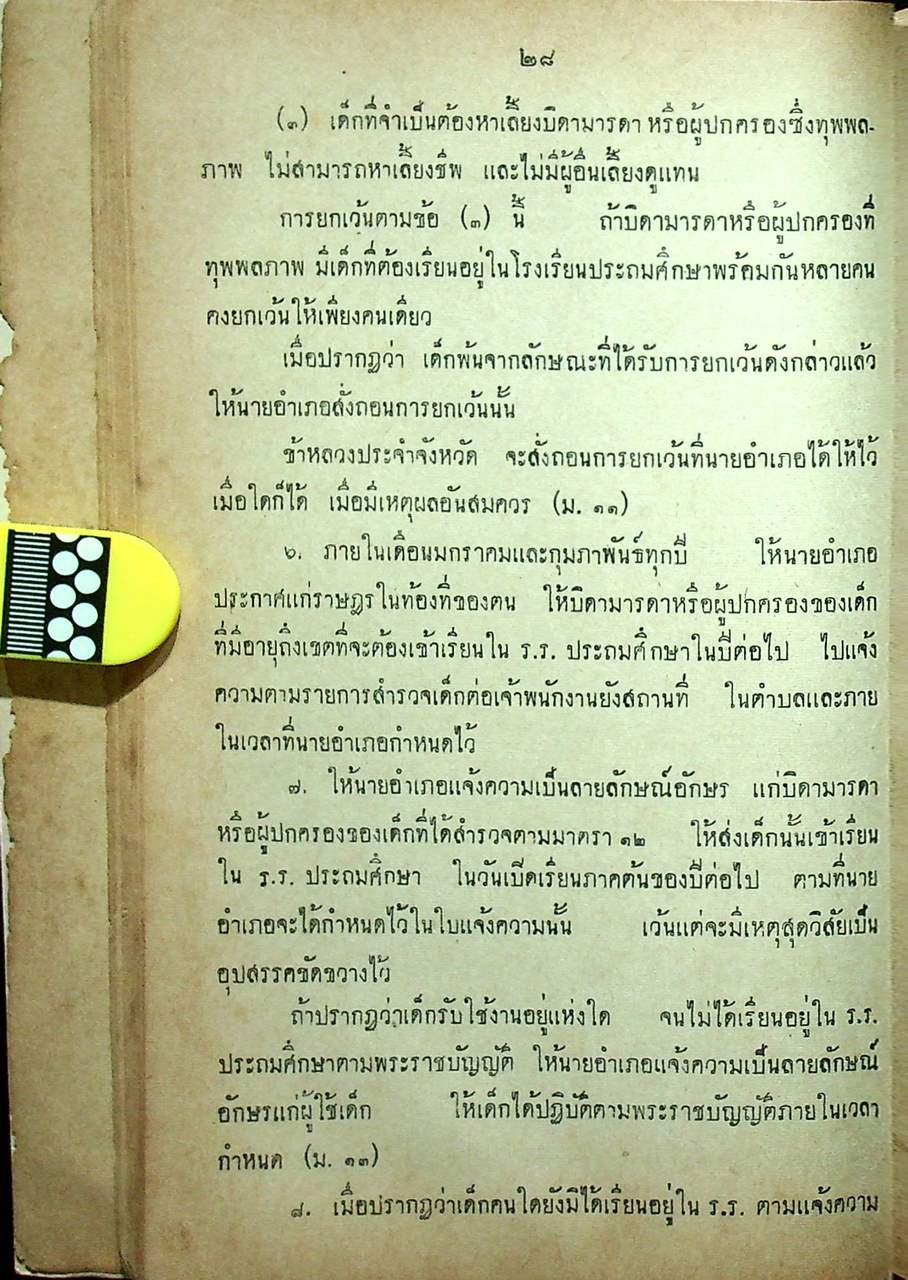 ๒๘
(๓) เด็กที่จำเป็นต้องหาเลี้ยงบิดามารดา หรือผู้ปกครองซึ่งทุพพล-
ภาพ ไม่สามารถหาเลี้ยงชีพ และไม่มีผู้อื่นเลี้ยงดูแทน
การยกเว้นตามข้อ (๓) นี้ ถ้าบิดามารดาหรือผู้ปกครองที่
ทุพพลภาพ มีเด็กที่ต้องเรียนอยู่ในโรงเรียนประถมศึกษาพร้อมกันหลายคน
คงยกเว้นให้เพียงคนเดียว
เมื่อปรากฏว่า เด็กพ้นจากลักษณะที่ได้รับการยกเว้นดังกล่าวแล้ว
ให้นายอำเภอสั่งถอนการยกเว้นนั้น
ข้าหลวงประจำจังหวัด จะสั่งถอนการยกเว้นที่นายอำเภอได้ให้ไว้
เมื่อใดก็ได้ เมื่อมีเหตุผลอันสมควร (ม. ๑๑)
๖. ภายในเดือนมกราคมและกุมภาพันธ์ทุกปี ให้นายอำเภอ
ประกาศแก่ราษฎรในท้องที่ของตน ให้บิดามารดาหรือผู้ปกครองของเด็ก
ที่มีอายุถึงเขตที่จะต้องเข้าเรียนใน ร.ร. ประถมศึกษาในปีต่อไป ไปแจ้ง
ความตามรายการสำรวจเด็กต่อเจ้าพนักงานยังสถานที่ ในตำบลและภาย
ในเวลาที่นายอำเภอกำหนดไว้
๗. ให้นายอำเภอแจ้งความเป็นลายลักษณ์อักษร แก่บิดามารดา
หรือผู้ปกครองของเด็กที่ได้สำรวจตามมาตรา ๑๒ ให้ส่งเด็กนั้นเข้าเรียน
ใน ร.ร. ประถมศึกษา ในวันเปิดเรียนภาคต้นของปีต่อไป ตามที่นาย
อำเภอจะได้กำหนดไว้ในใบแจ้งความนั้น เว้นแต่จะมีเหตุสุดวิสัยเป็น
อุปสรรคขัดขวางไว้
ถ้าปรากฏว่าเด็กรับใช้งานอยู่แห่งใด จนไม่ได้เรียนอยู่ใน ร.ร.
ประถมศึกษาตามพระราชบัญญัติ ให้นายอำเภอแจ้งความเป็นลายลักษณ์
อักษรแก่ผู้ใช้เด็ก ให้เด็กได้ปฏิบัติตามพระราชบัญญัติภายในเวลา
กำหนด (ม. ๑๓)
๘. เมื่อปรากฏว่าเด็กคนใดยังมิได้เรียนอยู่ใน ร.ร. ตามแจ้งความ